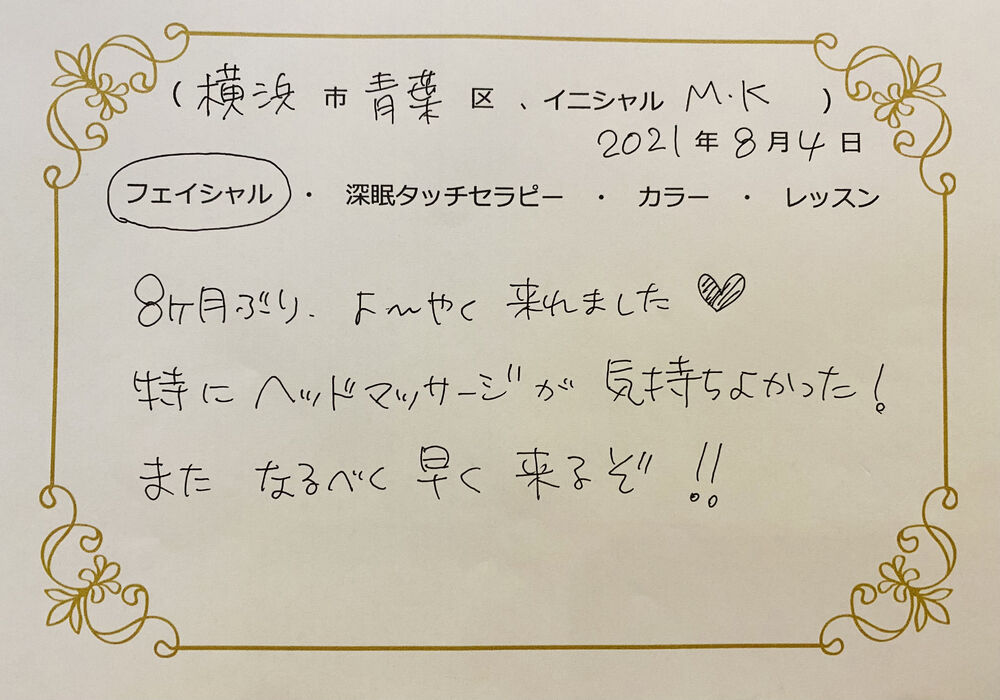 (横浜市青葉区、イニシャル M.K)
2021年8月4日
フェイシャル ・ 深眠タッチセラピー ・ カラー ・ レッスン
8ヶ月ぶり、よ〜やく来れました♡
特にヘッドマッサージが気持ちよかった!
またなるべく早く来るぞ!!